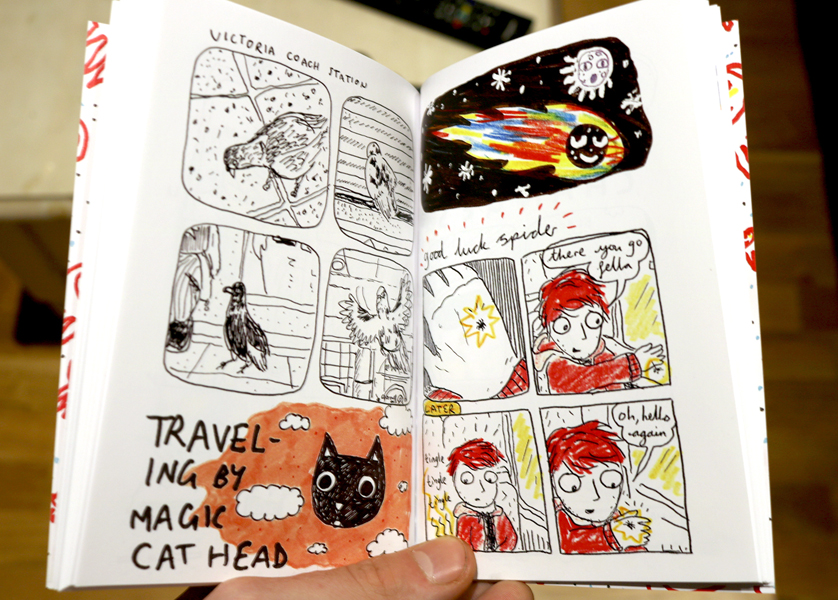 VICTORIA COACH STATION
TRAVEL-
ING BY
MAGIC
CAT HEAD
good luck spider
there you go
fella
LATER
tingle
tingle
tingle
oh, hello
again